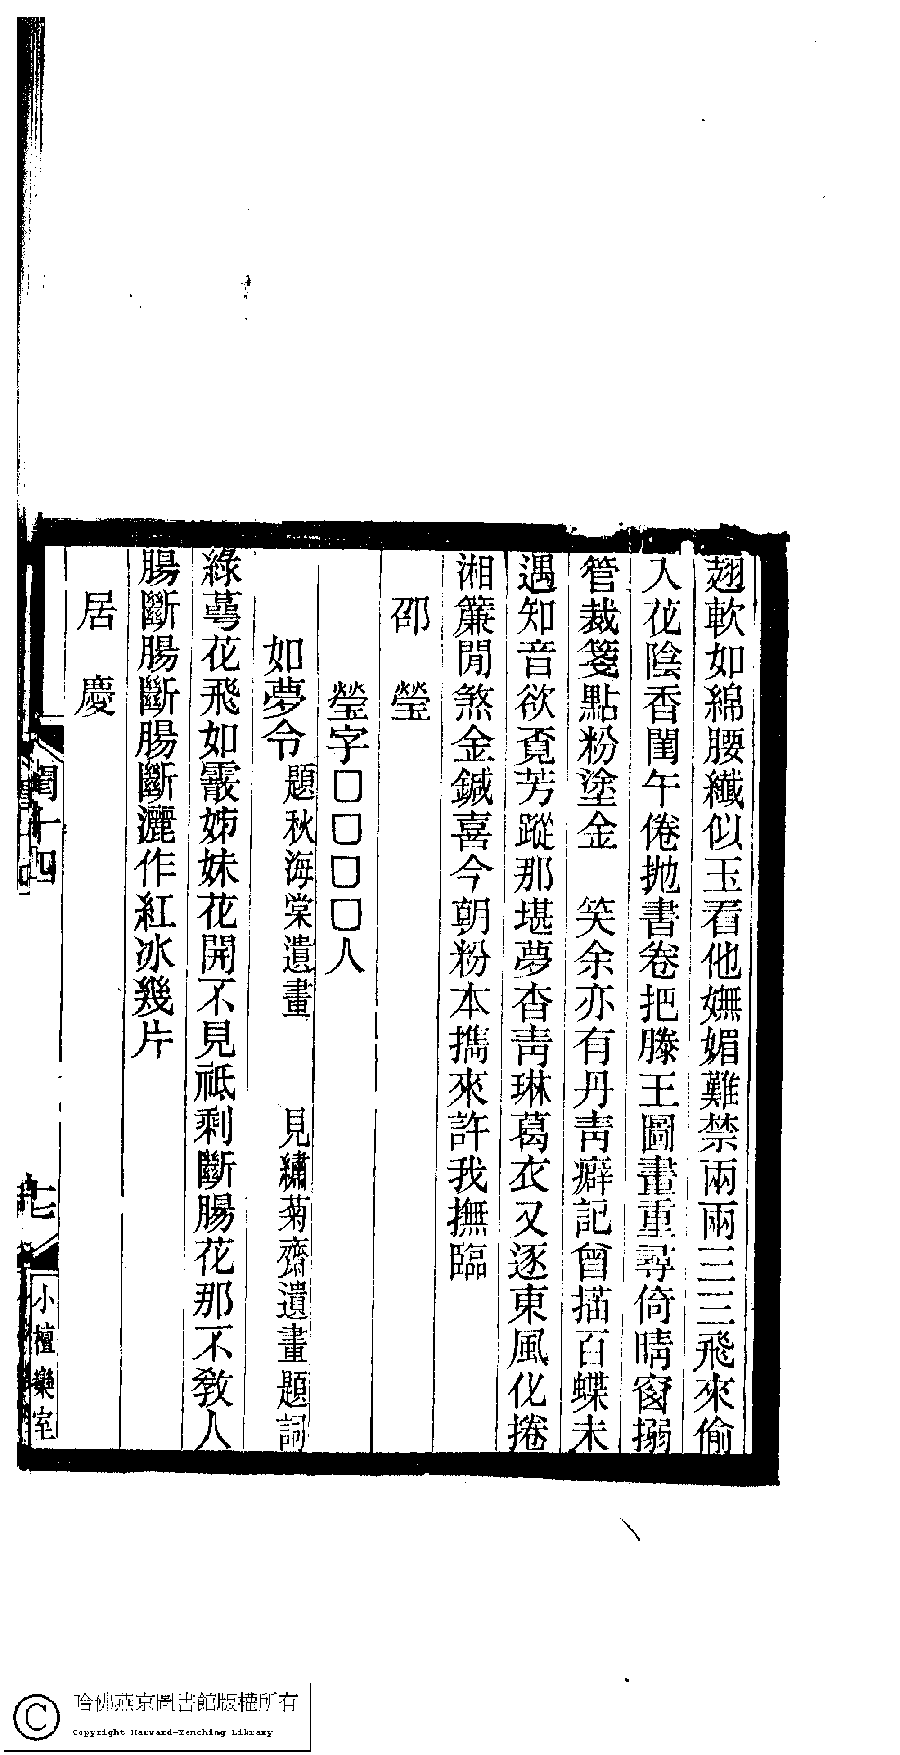 翅軟如綿腰纖似玉看他嫵媚難禁兩兩三三飛來偷
入花陰香閨午倦拋書卷把滕王圖畫重尋倚晴窗搦
管裁箋點粉塗金　笑余亦有丹靑癖記曾描百蝶未
遇知音欲覔芳蹤那堪夢杳靑琳葛衣又逐東風化捲
湘簾閒煞金鍼喜今朝粉本擕來許我撫臨
邵　瑩
瑩字□□□□人
如夢令題秋海棠遺畫　見繡菊齋遺畫題詞
綠蕚花飛如霰姊妹花開不見祗剩斷腸花那不敎人
腸斷腸斷腸斷灑作紅冰幾片
居　慶
閨十四
七
小檀欒室
哈佛燕京圖書館版權所有
Copyright Harvard-Yenching Library